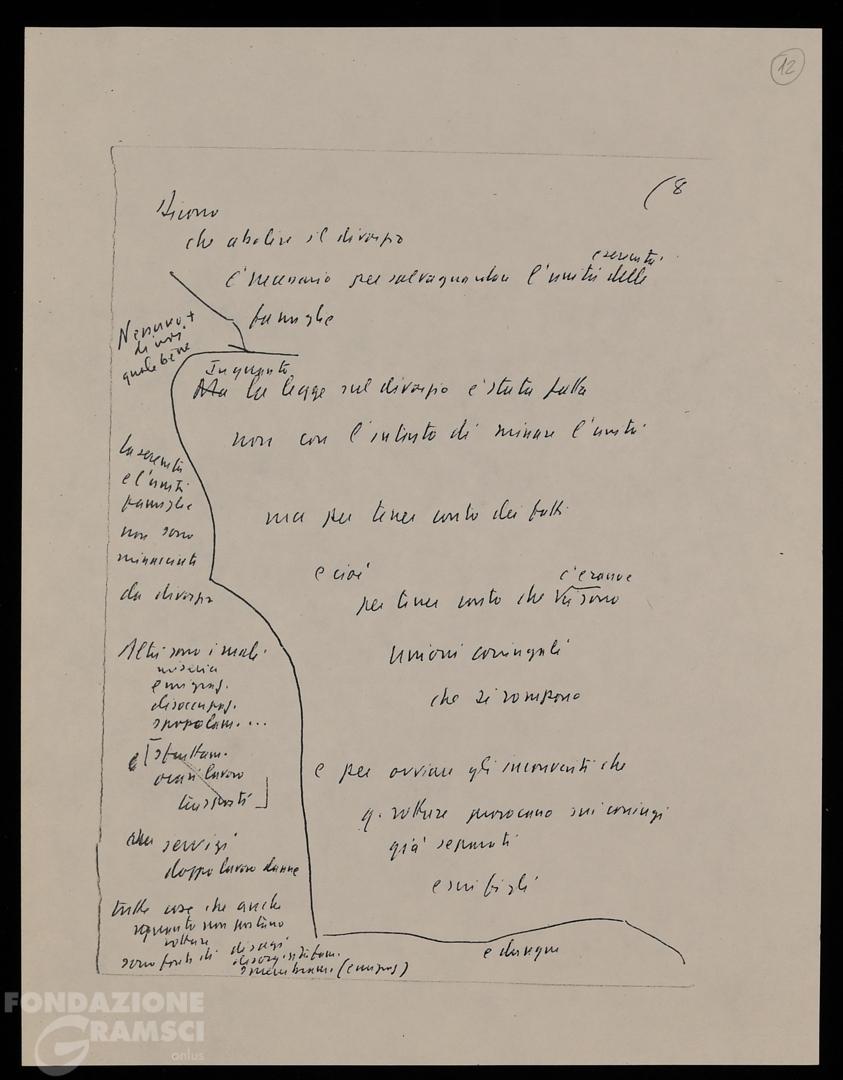 12
(8
Dicono
che abolire il divorzio
serenità
è necessario per salvaguardare l'unità delle
famiglie
Nessuno +
di noi
quale bene
In quanto
Ma la legge sul divorzio è stata fatta
non con l'intento di minare l'unità
ma per tener conto dei fatti
e cioè
c'erano e
per tener conto che vi sono
unioni coniugali
che si rompono
e per ovviare gli inconvenienti che
q. rotture provocano sui coniugi
già separati
e sui figli
e dunque
la serenità
e l'unità
famiglie
non sono
minacciate
da divorzio
Altri sono i mali
miseria
emigraz.
disoccupaz.
spopolam. ...
e sfruttam.
orari lavoro
trasporti
servizi
doppio lavoro donne
tutte cose che anche
quando non portano
rotture
sono fonti di disagi
smembram. (emigraz)
FONDAZIONE
GRAMSCI
onlus